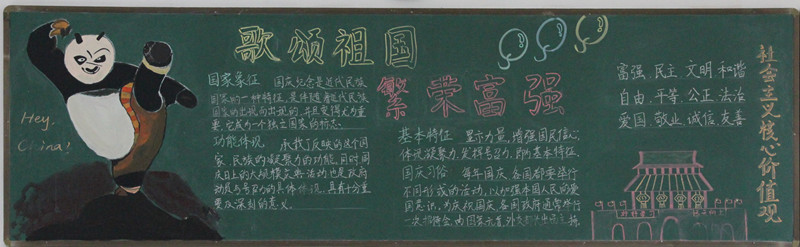 Hey,
China!
歌颂祖国
繁荣富强
国家象征 国庆纪念是近代民族
国家的一种特征,是伴随着近代民族
国家的出现而出现的,并且变得尤为重
要,它成为一个独立国家的标志
功能体现: 承载了反映的这个国
家、民族的凝聚力的功能。同时国
庆日上的大规模庆典活动也是政府
动员与号召力的具体体现,具有十分重
要及深刻的意义。
基本特征 显示力量,增强国民信心,
体现凝聚力,发挥号召力,即为基本特征。
国庆习俗 每年国庆,各国都要举行
不同形式的活动,以加强本国人民的爱
国意识。为庆祝国庆,各国政府通常举行
一次招待会,由国家元首、外交
富强、民主、文明、和谐
自由、平等、公正、法治
爱国、敬业、诚信、友善
社会主义核心价值观